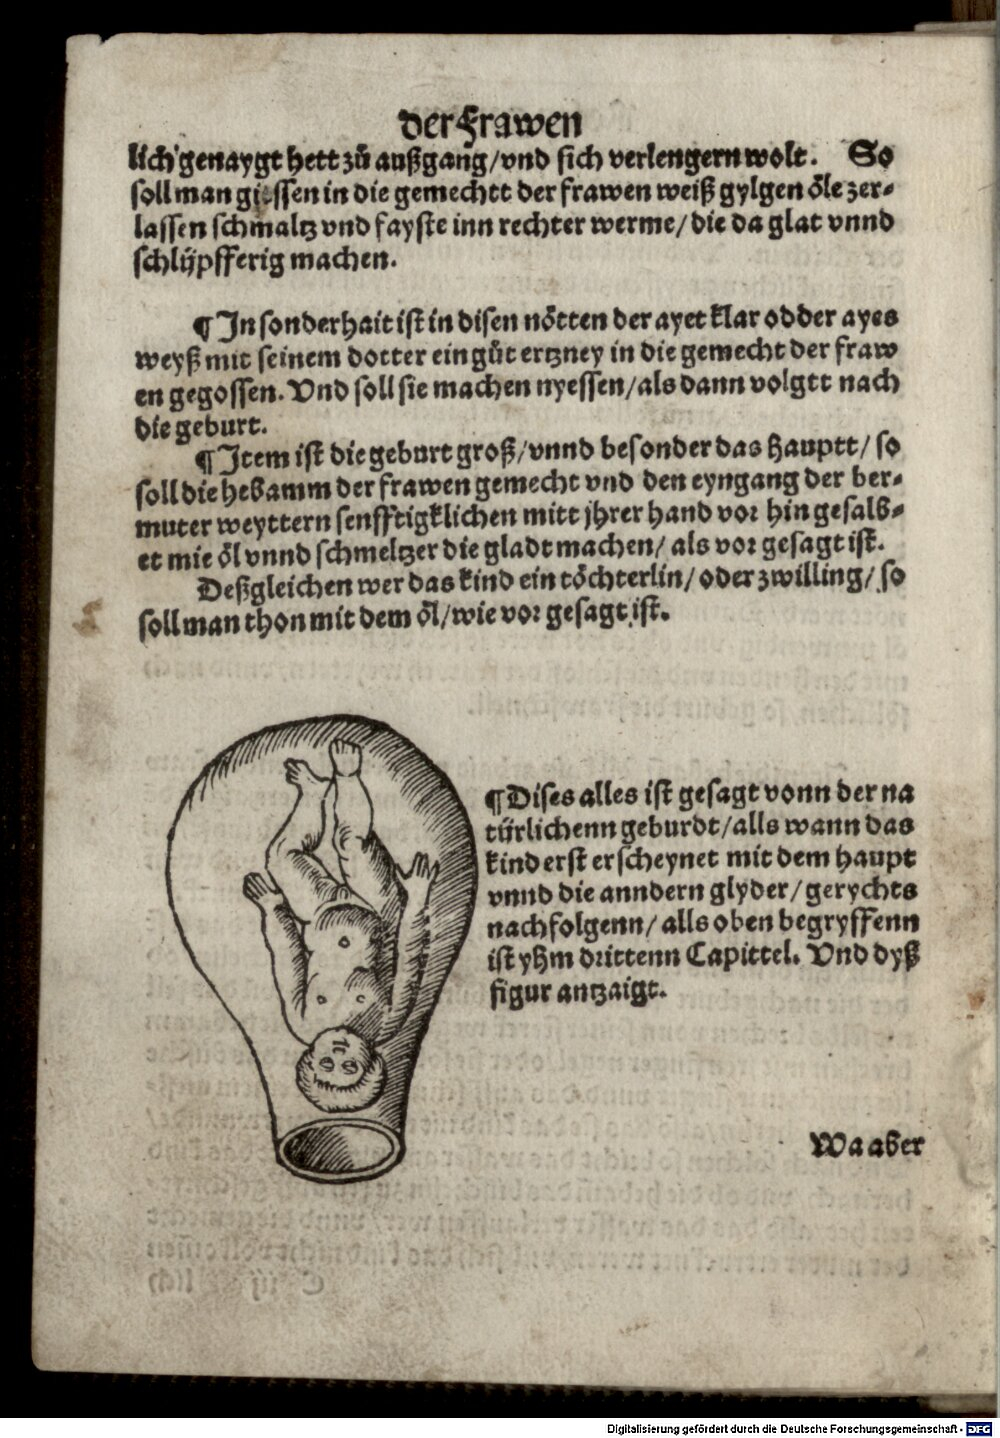 der Frawen
lich genaygt hett zů außgang/vnd sich verlengern wolt. So
soll man giessen in die gemechtt der frawen weiß gylgen öle zer-
lassen schmaltz vnd fayste inn rechter werme/die da glat vnnd
schlÿpfferig machen.
¶ In sonderhait ist in disen nötten der ayet klar odder ayes
weyß mit seinem dotter ein gůt ertzney in die gemecht der fraw
en gegossen. Vnd soll sie machen nyessen/als dann volgtt nach
die geburt.
¶ Item ist die geburt groß/vnnd besonder das Hauptt/so
soll die hebamm der frawen gemecht vnd den eyngang der ber-
muter weyttern sensfftigklichen mitt jhrer hand vor hin gesalb-
et mie öl vnnd schmeltzer die gladt machen/als vor gesagt ist.
Deßgleichen wer das kind ein töchterlin/oder zwilling/so
soll man thon mit dem öl/wie vor gesagt ist.
¶ Dises alles ist gesagt vonn der na
türlichenn geburdt/alls wann das
kind erst erscheynet mit dem haupt
vnnd die anndern glyder/gerychts
nachfolgenn/alls oben begryffenn
ist yhm drittenn Capittel. Vnd dyß
figur antzaigt.
Wa aber
Digitalisierung gefördert durch die Deutsche Forschungsgemeinschaft - DFG